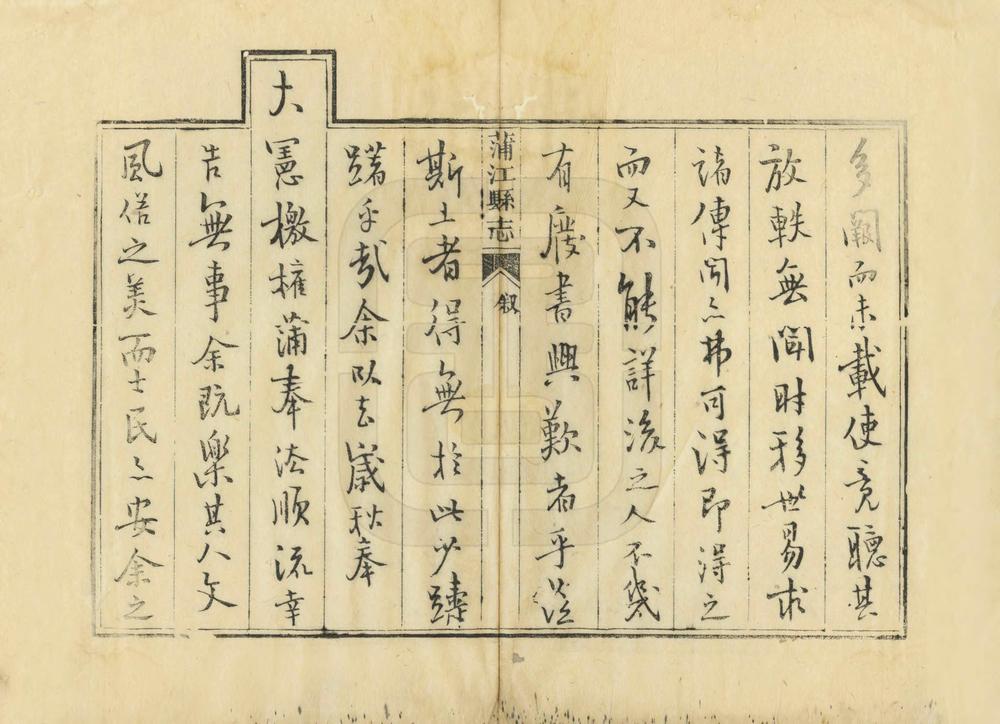 多闕而未載使竟聽其
放軼無聞時移世易求
諸傳聞亦弗可得即得之
而又不能詳後之人不幾
有廢書興歎者乎蒞
蒲江縣志
叙
斯土者得無於此少躊
躇乎哉余以去歲秋奉
大憲檄攝蒲奉法順流幸
告無事余既樂其人文
風俗之美而士民亦安余之